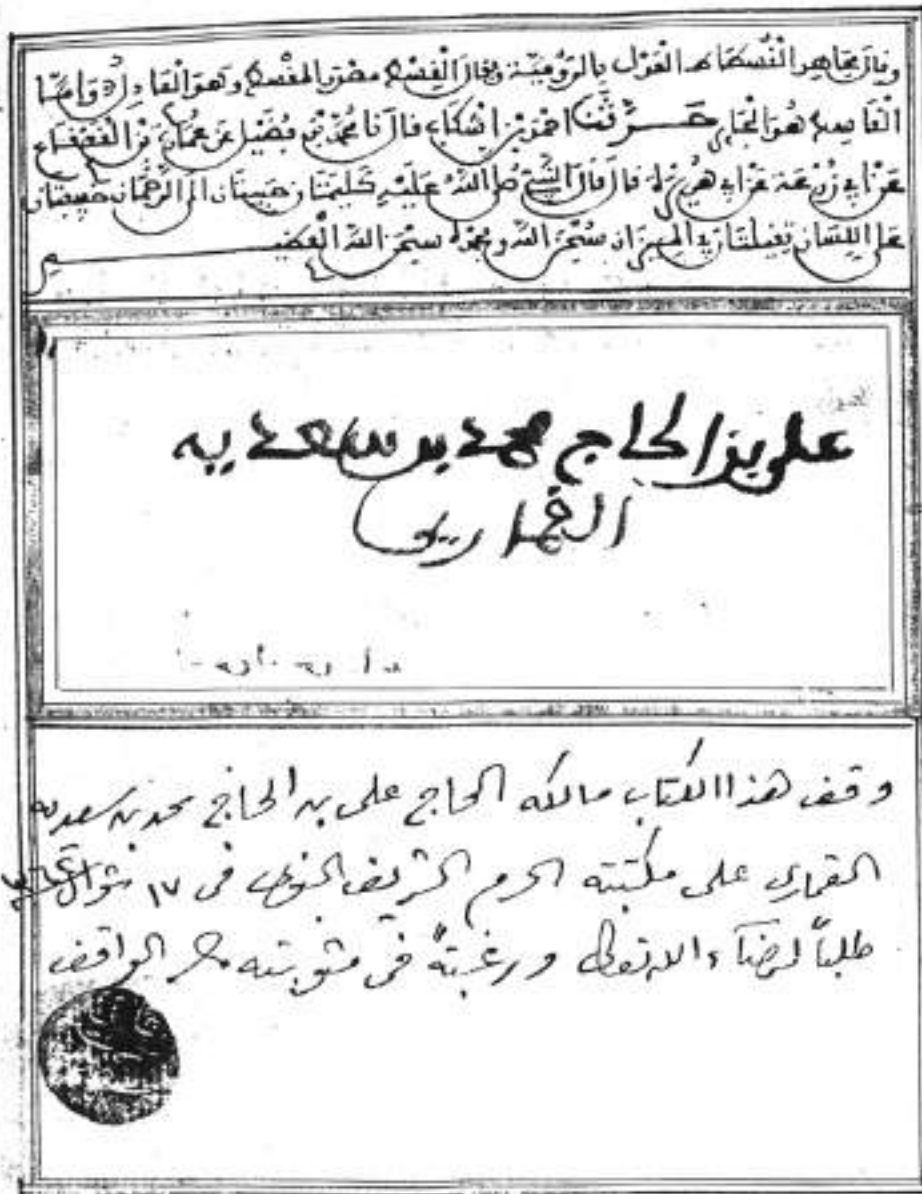 وقال مجاهد القسطاس العدل بالرومية ويقال القسط مصدر المقسط وهو العادل وأما
القاسط فهو الجائر حدثنا أحمد بن اشكاب قال نا محمد بن فضيل عن عمارة بن القعقاع
عن أبي زرعة عن أبي هريرة قال قال النبي صلى الله عليه كلمتان حبيبتان الى الرحمان خفيفتان
على اللسان ثقيلتان في الميزان سبحن الله وبحمده سبحن الله العظيم
علي بن الحاج محمد بن سعديه
القماري
وقف هذا الكتاب مالكه الحاج علي بن الحاج محمد بن سعديه
القماري على مكتبة الحرم الشريف النبوي في ١٧ شوال
طلباً لرضآء الله تعالى ورغبةً في مثوبته الواقف